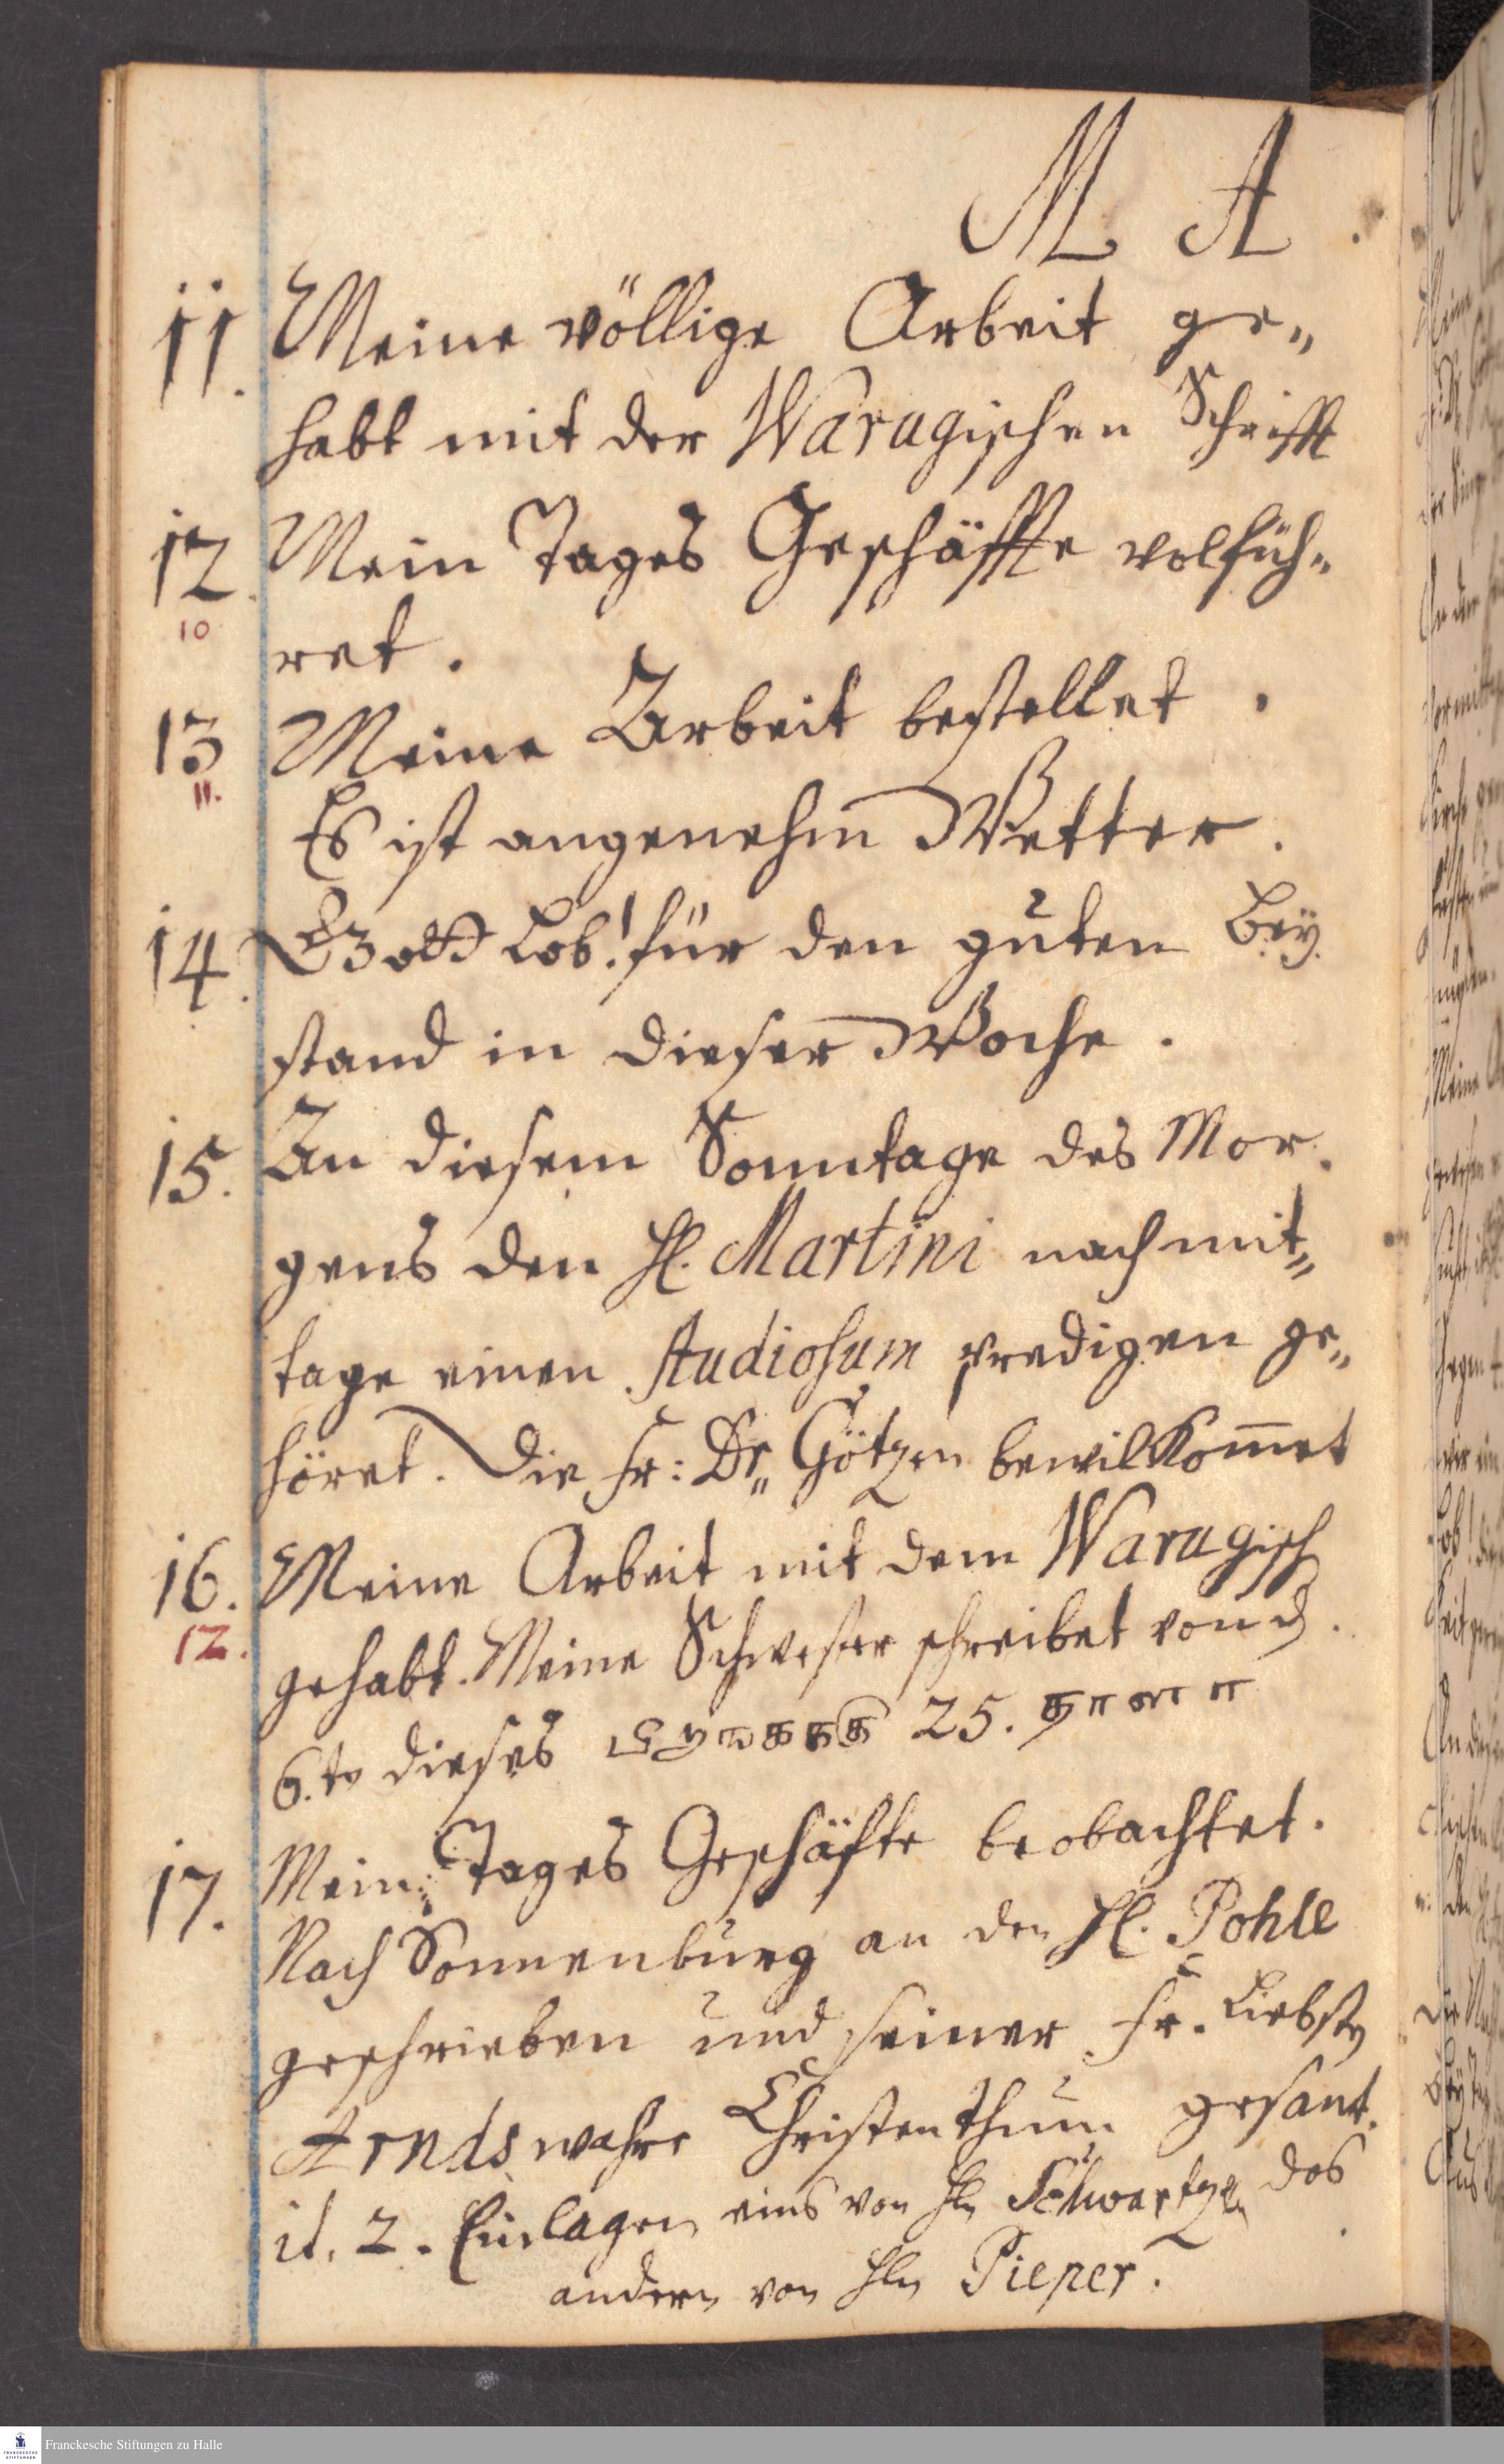 M A
11. Meine völlige Arbeit ge„
habt mit der Warugischen Schrifft
12. Mein Tages Geschäffte volfüh„
10
ret.
13 Meine Arbeit bestellet.
11.
Es ist angenehm Wetter.
14. Gott Lob! für den guten Bey
stand in dieser Woche.
15. An diesem Sonntage des Mor
gens den H. Martini nachmit„
tage einen Studiosum predigen ge„
höret. Die Fr: Dr„ Götzen bewilkom̄et
16. Meine Arbeit mit dem Warugisch
12.
gehabt. Meine Schwester schreibet von d.
6.ten dieses 25.
17. Mein Tages Geschäfte beobachtet.
Nach Sonnenburg an den H. Pohle
geschrieben und seiner Fr. Liebsten
Arnds wahre Christenthum gesant.
it. 2. Einlagen eins von Hn Schwartzen das
andern von Hln Pieper.
Franckesche Stiftungen zu Halle